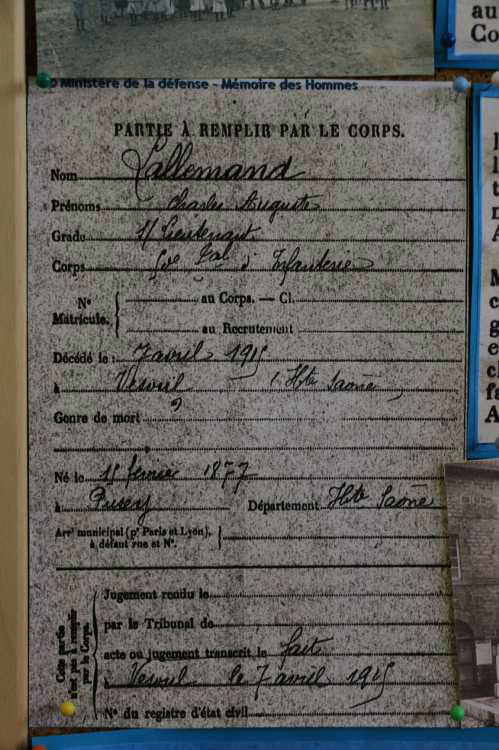 au
Co
© Ministère de la défense - Mémoire des Hommes
PARTIE À REMPLIR PAR LE CORPS.
Nom Lallemand
Prénoms Charles Auguste
Grade S/ Lieutenant
Corps d'Infanterie
N° Matricule. { au Corps. — Cl.
au Recrutement
Décédé le : 7 avril 1915
à Vesoul (Hte Saône
Genre de mort ?
Né le 15 février 1877
à Pusey Département Hte Saône
Arrt municipal (pr Paris et Lyon), à défaut rue et N°. {
Cette partie n'est pas à remplir par le Corps.
Jugement rendu le
par le Tribunal de
acte ou jugement transcrit le fait
à Vesoul le 7 avril 1915
N° du registre d'état civil